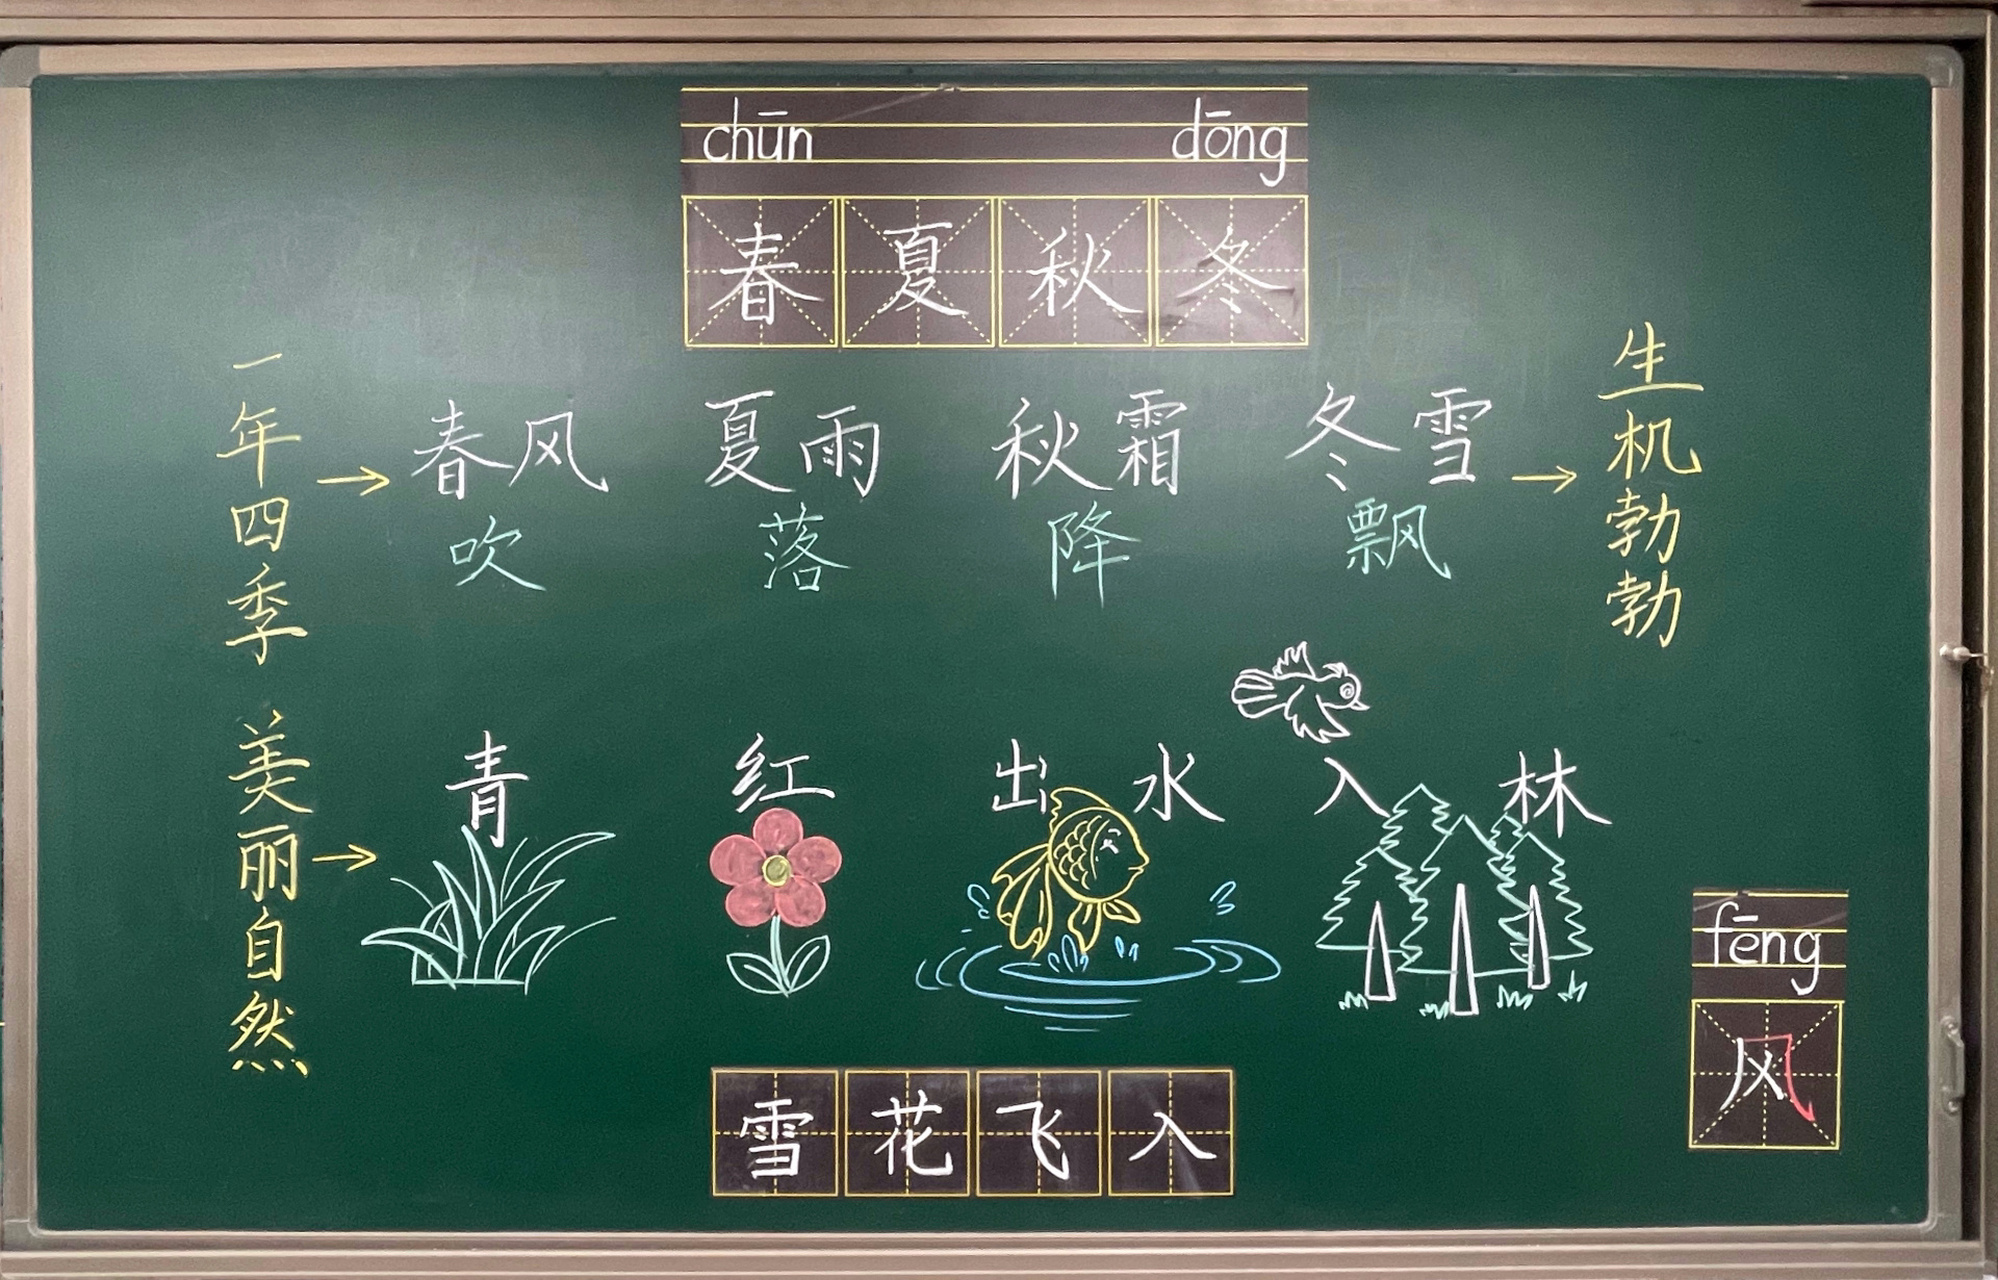 chūn dōng
春夏秋冬
一年四季
春风 夏雨 秋霜 冬雪
吹 落 降 飘
生机勃勃
美丽自然
青 红 出水 入林
雪花飞入
fēng
风